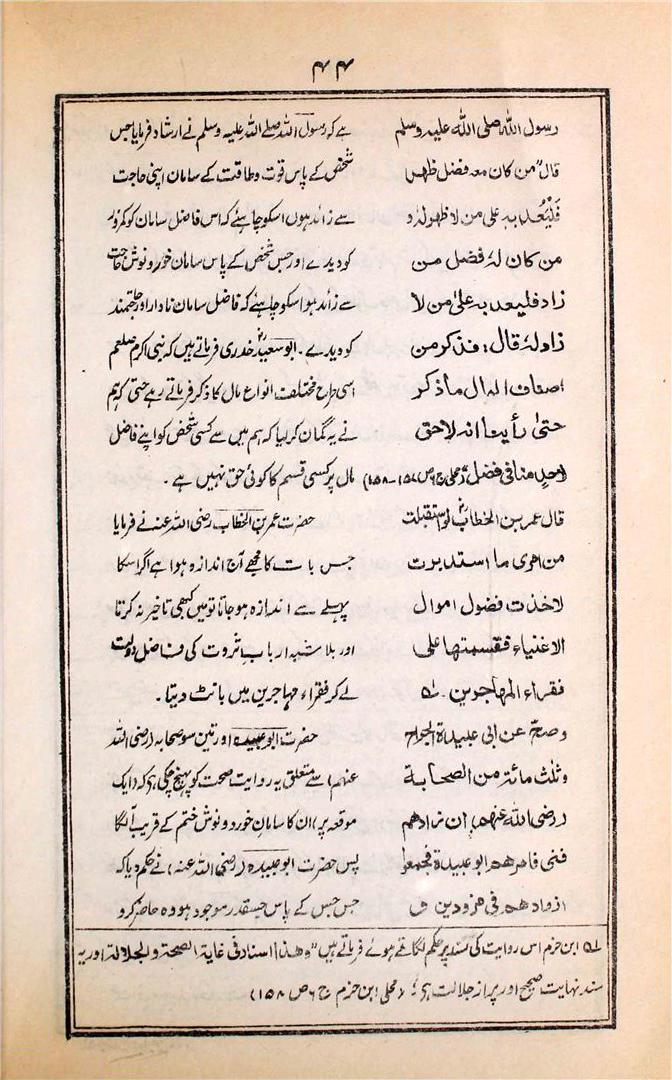 ۴۴
رسول اللہ صلی اللہ علیہ وسلم
قال "من کان معہ فضل ظھر
فلیعد بہ علی من لا ظھر لہ و
من کان لہ فضل من
زاد فلیعد بہ علیٰ من لا
زاد لہ قال: فذکر من
اصناف المال ماذکر
حتیٰ رأینا انہ لاحق
لاحدٍ منا فی فضل" (محلی ج ۶ ص ۱۵۷-۱۵۸)
قال عمر بن الخطابؓ لو استقبلت
من امری ما استدبرت
لاخذت فضول اموال
الاغنیاء فقسمتھا علی
فقراء المھاجرین۔ لہ
وصحّ عن ابی عبیدۃ الجراح
وثلث مائۃ من الصحابۃ
(رضی اللہ عنھم) ان زادھم
فنی فامرھم ابو عبیدۃ فجمعوا
ازوادھم فی مزودین و
ہے کہ رسول اللہ صلے اللہ علیہ وسلم نے ارشاد فرمایا جس
شخص کے پاس قوت و طاقت کے سامان اپنی حاجت
سے زائد ہوں اسکو چاہئے کہ اس فاضل سامان کو کمزور
کو دیدے اور جس شخص کے پاس سامان خورد و نوش حاجت
سے زائد ہو اسکو چاہئے کہ فاضل سامان نادار اور حاجتمند
کو دیدے۔ ابو سعیدؓ خدری فرماتے ہیں کہ نبی اکرم صلعم
اسی طرح مختلف انواع مال کا ذکر فرماتے رہے حتی کہ ہم
نے یہ گمان کر لیا کہ ہم میں سے کسی شخص کو اپنے فاضل
مال پر کسی قسم کا کوئی حق نہیں ہے۔
حضرت عمر بن الخطاب رضی اللہ عنہ نے فرمایا
جس بات کا مجھے آج اندازہ ہوا ہے اگر اسکا
پہلے سے اندازہ ہو جاتا تو میں کبھی تاخیر نہ کرتا
اور بلاشبہ ارباب ثروت کی فاضل دولت
لے کر فقراء مہاجرین میں بانٹ دیتا۔
حضرت ابو عبیدہ اور تین سو صحابہ (رضی اللہ
عنہم) سے متعلق یہ روایت صحت کو پہنچ چکی ہی کہ (ایک
موقعہ پر) ان کا سامان خورد و نوش ختم کے قریب آ لگا
پس حضرت ابو عبیدہ (رضی اللہ عنہ) نے حکم دیا کہ
جس جس کے پاس جسقدر موجود ہو وہ حاضر کرو
لہ ابن حزم اس روایت کی سند پر حکم لگاتے ہوئے فرماتے ہیں "وھذا اسناد فی غایۃ الصحۃ والجلالۃ اور یہ
سند نہایت صحیح اور پر از جلالت ہی" (محلی ابن حزم ج ۶ ص ۱۵۸)